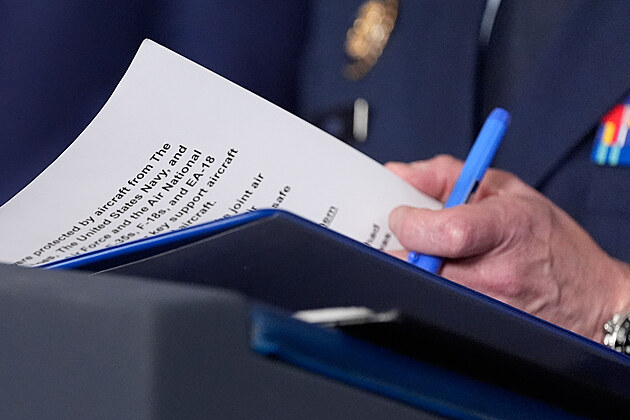 ere protected by aircraft from The
es, The United States Navy, and
Force and the Air National
35s, F-18s, and EA-18
key support aircraft
aircraft.
e joint air
safe
em
had